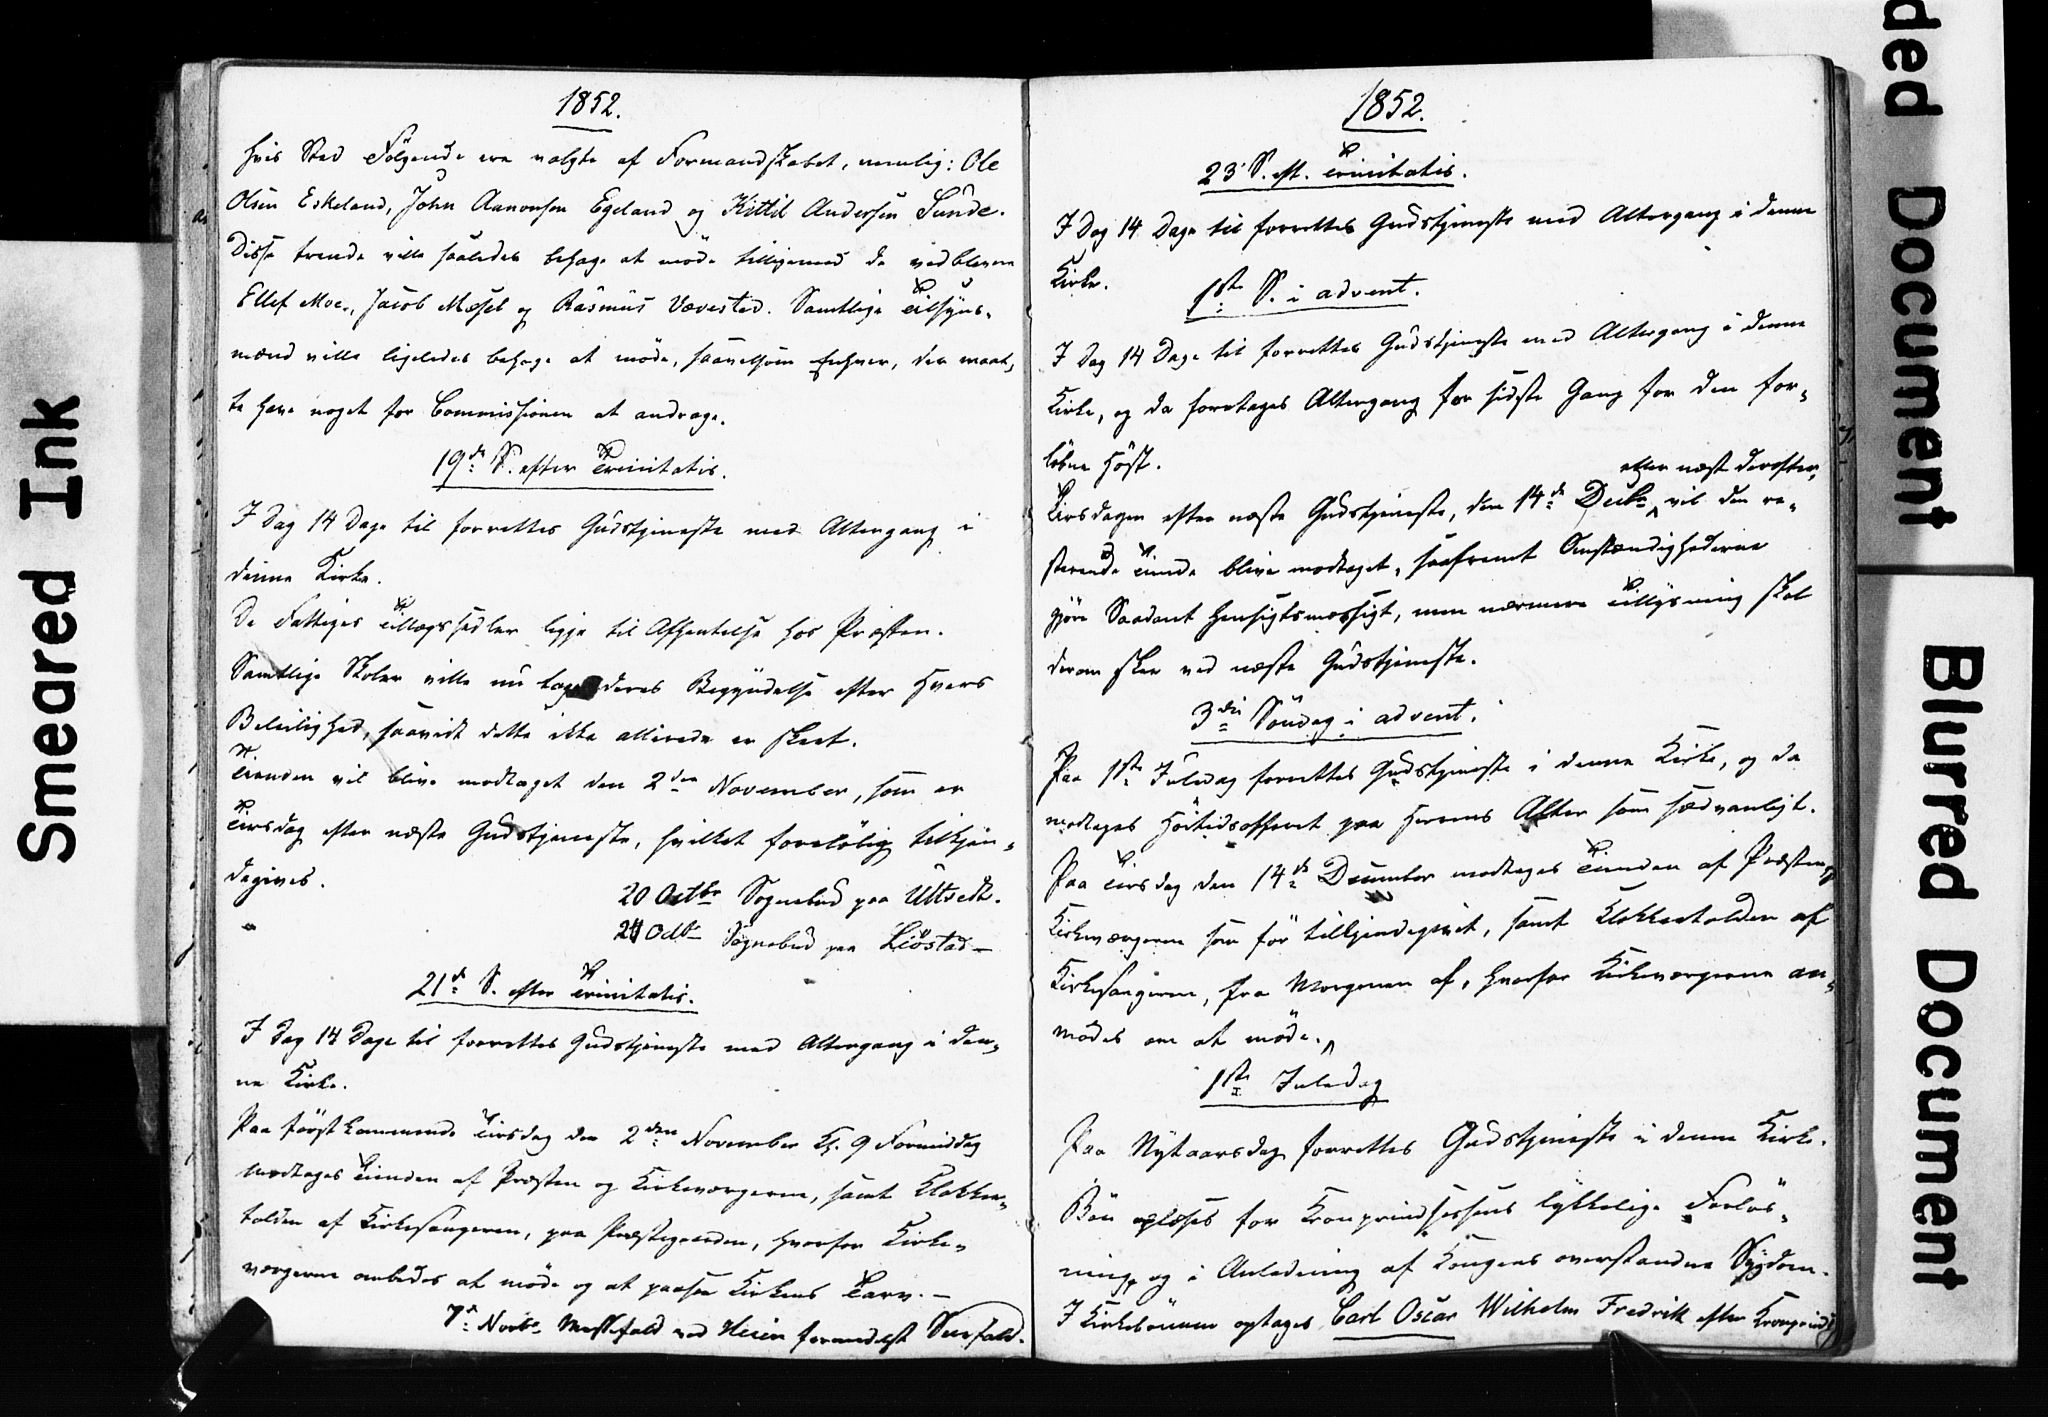 1852.
hvis Sted Følgende ere valgte af Formandskabet, nemlig: Ole
Olsen Eskeland, John Aanonsen Egeland og Kittil Andersen Sunde.
Disse trende ville saaledes behage at møde tilligemed de vedblevne
Ellef Moe, Jacob Mæsel og Rasmus Vævested. Samtlige Tilsyns-
mænd ville ligeledes behage at møde, saavelsom Enhver, der maat-
te have noget for Commissionen at andrage.
19de S. efter Trinitatis.
I Dag 14 Dage til forrettes Gudstjeneste med Altergang i
denne Kirke.
De Fattiges Tillægssedler ligge til Afhentelse hos Præsten.
Samtlige Skoler ville nu tage deres Begyndelse efter Hvers
Beleilighed, saavidt dette ikke allerede er skeet.
Tienden vil blive modtaget den 2den November, som er
Tirsdag efter næste Gudstjeneste, hvilket foreløbig tilkjen-
degives.
20 Octbr Sognebud paa Ultvedt.
21 Octbr Sognebud paa Liøstad
21de S. efter Trinitatis.
I Dag 14 Dage til forrettes Gudstjeneste med Altergang i den-
ne Kirke.
Paa førstkommende Tirsdag den 2den November Kl. 9 Formiddag
modtages Tienden af Præsten og Kirkeværgerne, samt Klokker-
tolden af Kirkesangeren, paa Præstegaarden, hvorfor Kirke-
værgerne anbedes at møde og at paasee Kirkens Tarv.
7de Novbr Messefald ved formedelst
1852.
23 S. eft. Trinitatis.
I Dag 14 Dage til forrettes Gudstjeneste med Altergang i denne
Kirke.
1ste S. i advent.
I Dag 14 Dage til forrettes Gudstjeneste med Altergang i denne
Kirke, og da foretages Altergang for sidste Gang for den for-
løbne Høst.
eller næst derefter,
Tirsdagen efter næste Gudstjeneste, den 14de Decbr vil den re-
sterende Tiende blive modtaget, saafremt Omstændighederne
gjøre Saadant hensigtsmæssigt, men nærmere Tillysning skal
derom skee ved næste Gudstjeneste.
3die Søndag i advent.
Paa 1ste Juledag forrettes Gudstjeneste i denne Kirke, og da
modtages Høitidsofferet paa Herrens Alter som sædvanligt.
Paa Tirsdag den 14de December modtages Tienden af Præsten og
Kirkeværgerne som før tilkjendegivet, samt Klokkertolden af
Kirkesangeren, fra Morgenen af, hvorfor Kirkeværgerne an-
modes om at møde.
1ste Juledag
Paa Nytaarsdag forrettes Gudstjeneste i denne Kirke.
Bøn oplæses for Kronprindsessens lykkelige Forløs-
ning, og i Anledning af Kongens overstandne Sygdom.
I Kirkebønnen optages Carl Oscar Wilhelm Fredrik efter
Smeared Ink
ded Document
Blurred Document